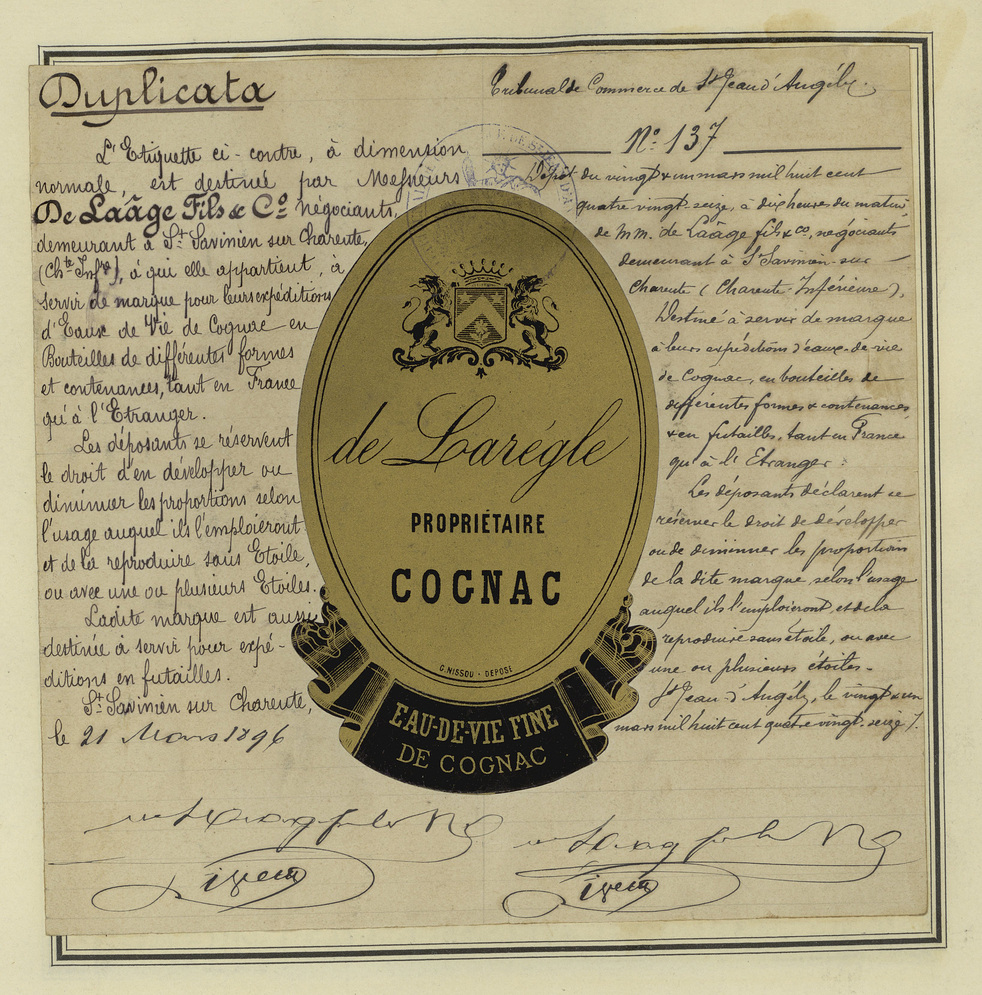 Duplicata
L'Etiquette ci-contre, à dimension
normale, est destinée par Messieurs
De Laâge Fils & Cº négociants,
demeurant à St Savinien sur Charente,
(Chte Infre), à qui elle appartient, à
servir de marque pour leurs expéditions
d'Eaux de Vie de Cognac en
Bouteilles de différentes formes
et contenances, tant en France
qu'à l'Etranger.
Les déposants se réservent
le droit d'en développer ou
diminuer les proportions selon
l'usage auquel ils l'emploieront
et de la reproduire sans Etoile,
ou avec une ou plusieurs Etoiles.
Ladite marque est aussi
destinée à servir pour expé-
ditions en futailles.
St Savinien sur Charente,
le 21 Mars 1896
Tribunal de Commerce de St Jean d'Angély.
Nº 137
Dépôt du vingt & un mars mil huit cent
quatre vingt-seize, à dix heures du matin,
de MM. de Laâge fils & co, négociants
demeurant à St Savinien-sur-
Charente (Charente-Inférieure),
Destiné à servir de marque
à leurs expéditions d'eaux-de-vie
de Cognac, en bouteilles de
différentes formes & contenances
& en futailles, tant en France
qu'à l'Etranger.
Les déposants déclarent se
réserver le droit de développer
ou de diminuer les proportions
de la dite marque, selon l'usage
auquel ils l'emploieront, et de la
reproduire sans étoile, ou avec
une ou plusieurs étoiles-
St Jean d'Angély, le vingt & un
mars mil huit cent quatre vingt-seize /.
de Larégle
PROPRIÉTAIRE
COGNAC
G. NISSOU - DEPOSÉ
EAU-DE-VIE FINE
DE COGNAC